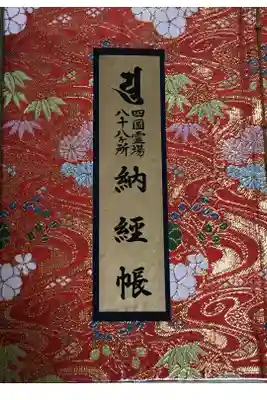 四國霊場
八十八ヶ所
納經帳